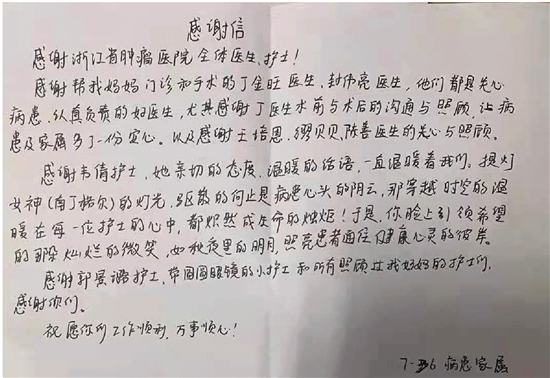 感谢信
感谢浙江省肿瘤医院全体医生、护士！
感谢帮我妈妈门诊和手术的丁金旺医生、封伟亮医生，他们都是关心
病患、认真负责的好医生，尤其感谢丁医生术前与术后的沟通与照顾，让病
患及家属多了一份安心。以及感谢王培恩、缪贝贝、陈善医生的关心与照顾。
感谢韦倩护士，她亲切的态度、温暖的话语，一直温暖着我们。提灯
女神（南丁格尔）的灯光，驱散的何止是病患心头的阴云，那穿越时空的温
暖在每一位护士的心中，都炽然成生命的烛炬！于是，你脸上引领希望
的那朵灿烂的微笑，如秋夜里的明月，照亮患者通往健康心灵的彼岸。
感谢郭景璐护士、带圆圆眼镜的小护士和所有照顾过我妈妈的护士们，
感谢你们。
祝愿你们工作顺利，万事顺心！
病患家属